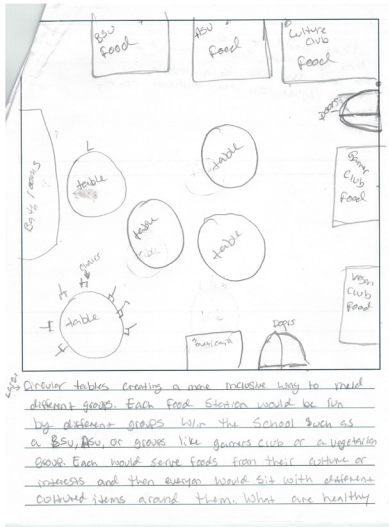 BSU
Food
ASU
Food
Culture
Club
Food
Doors
Gamer
Club
Food
Vegan
Club
Food
table
table
table
table
chairs
table
Doors
Circular tables creating a more inclusive way to meld
different groups. Each food station would be run
by different groups W/in the School such as
a BSU, ASU, or groups like gamers club or a vegetarian
group. Each would serve foods from their culture or
interests and then everyone would sit with different
cultured items around them. What are healthy